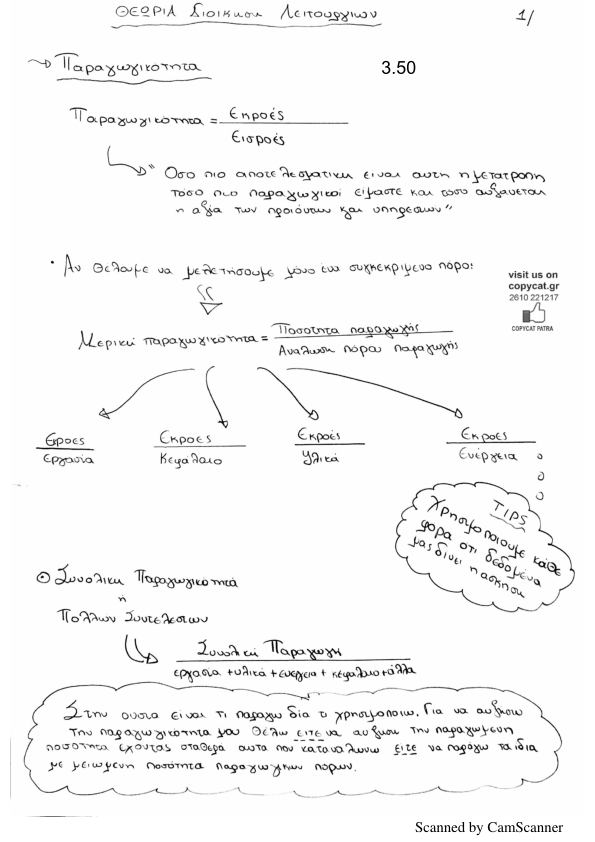 ΘΕΩΡΙΑ Διοικηση Λειτουργιων 1/
Παραγωγικοτητα 3.50
Παραγωγικοτητα = Εκροές
Εισροές
" Οσο πιο αποτελεσματικη ειναι αυτη η μετατροπη
τοσο πιο παραγωγικοί είμαστε και τοσο αυξανεται
η αξία των προιόντων και υπηρεσιων "
• Αν Θελουμε να μελετήσουμε μόνο ενα συγκεκριμενο πόρο:
visit us on
copycat.gr
2610 221217
COPYCAT PATRA
Μερικη παραγωγικοτητα = Ποσοτητα παραγωγής
Αναλωση πόρου παραγωγής
Εκροες Εκροες Εκροές Εκροές
Εργασία Κεφαλαιο Υλικά Ενέργεια
TIPS
Χρησιμοποιουμε κάθε
φορα οτι δεδομένα
μας δινει η ασκηση
Συνολικη Παραγωγικοτητα
ή
Πολλων Συντελεστων
Συνολικη Παραγωγη
εργασια + υλικά + ενεργεια + κεφαλαιο + άλλα
Στην ουσια ειναι τι παραγω δια τι χρησιμοποιω. Για να αυξησω
την παραγωγικοτητα μου θελω ειτε να αυξησω την παραγωμενη
ποσότητα εχοντας σταθερά αυτα που καταναλωνω είτε να παράγω τα ιδια
με μειωμενη ποσότητα παραγωγικων πορων.
Scanned by CamScanner